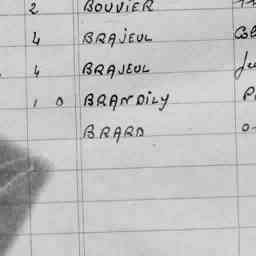 2 BOUVIER
4 BRAJEUL Col
4 BRAJEUL Ju
1 0 BRANDILY P
BRARD